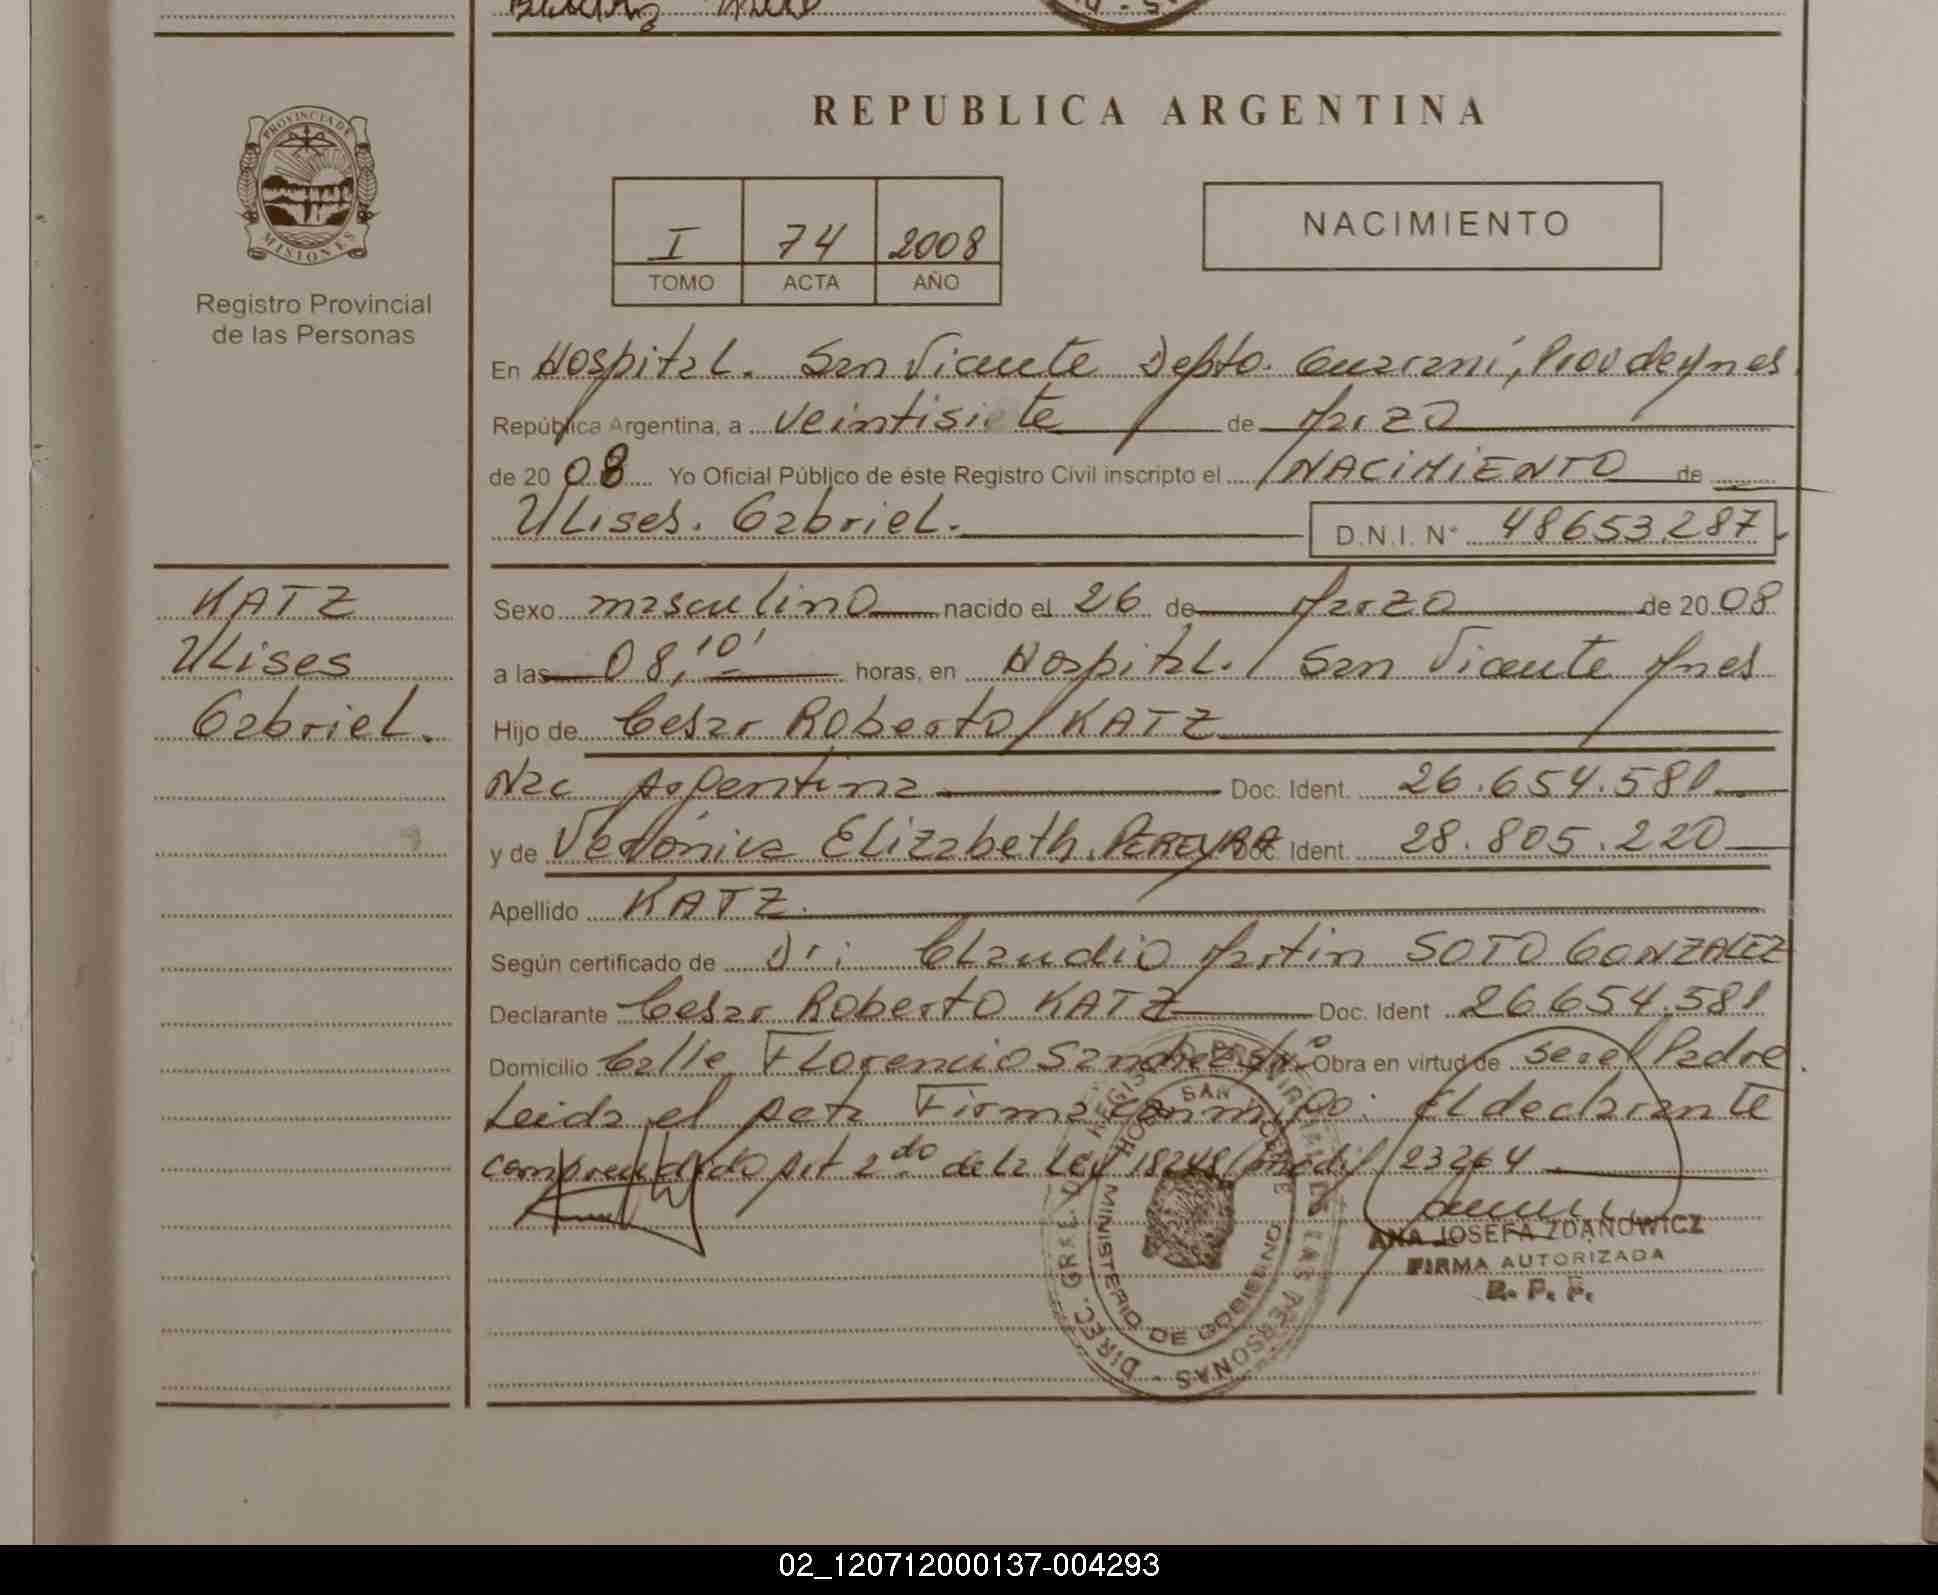 REPUBLICA ARGENTINA
PROVINCIA DE
MISIONES
Registro Provincial
de las Personas
I 74 2008
TOMO ACTA AÑO
NACIMIENTO
En Hospital. San Vicente Depto. Guaraní, Prov de Mnes
República Argentina, a veintisiete de Marzo
de 2008 Yo Oficial Público de éste Registro Civil inscripto el NACIMIENTO de
Ulises. Gabriel. D.N.I. N° 48653.287
KATZ
Ulises
Gabriel.
Sexo masculino nacido el 26 de Marzo de 2008
a las 08,10' horas, en Hospital. San Vicente Mnes
Hijo de Cesar Roberto KATZ
Nac Argentina Doc. Ident. 26.654.581
y de Verónica Elizabeth. PEREYRA Doc. Ident. 28.805.220
Apellido KATZ.
Según certificado de Dr: Claudio Martin SOTO GONZALEZ
Declarante Cesar Roberto KATZ Doc. Ident 26654.581
Domicilio Calle Florencio Sanchez s/n° Obra en virtud de ser el Padre.
Leida el acta Firma conmigo: El declarante
comprendido Art 2do de la Ley 18248/modif/23264
DIREC. GRAL. DEL REGISTRO PROVINCIAL DE LAS PERSONAS
MINISTERIO DE GOBIERNO
SAN VICENTE
ANA JOSEFA ZDANOWICZ
FIRMA AUTORIZADA
R. P. P.
02_120712000137-004293